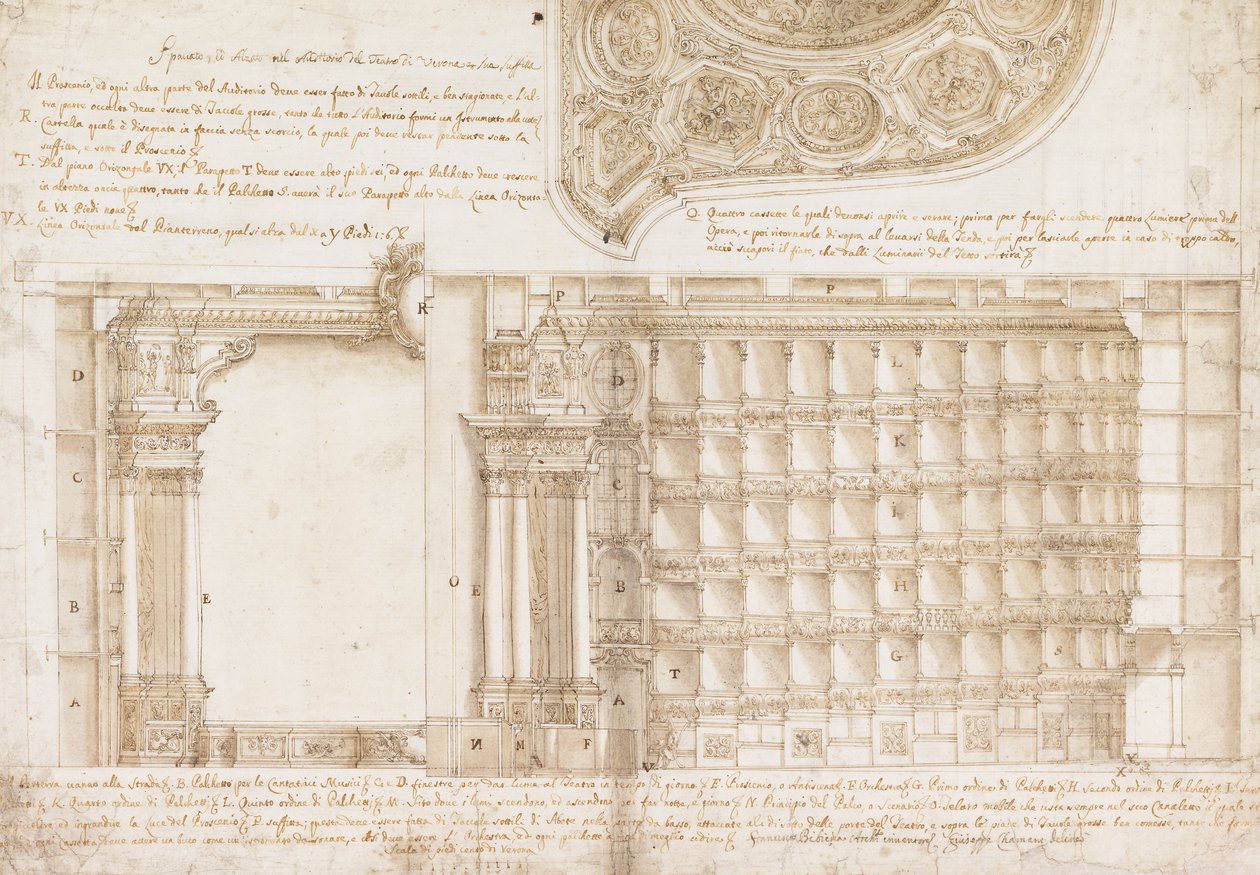 Spaccato, ed Alzato nel Auditorio del Teatro di Verona e sua suffitta
Il Proscenio, ed ogni altra parte del Auditorio deve esser fatto di Tavole sottili, e ben stagionate, e l'al-
tra parte occulta deve essere di Tavole grosse, tanto che tutto l'Auditorio formi un Istrumento alla voce
R. Cartella quale è disegnata in faccia senza scorcio, la quale poi deve restar pendente sotto la
suffitta, e sotto il Proscenio
T. Dal piano Orizontale VX: il Parapetto T deve essere alto piedi sei, ed ogni Palchetto deve crescere
in altezza oncie quattro, tanto che il Palchetto S. averà il suo Parapetto alto dalla Linea Orizonta-
le VX Piedi nove
VX. Linea Orizontale del Pianterreno, qual si alza dal x a y Piedi 1:6
Q. Quattro cassette le quali devonsi aprire e serare; prima per fargli scendere quattro Lumiere prima dell
Opera, e poi ritornarle di sopra al levarsi della Tenda, e poi per lasciarle aperte in caso di troppo caldo,
acciò svapori il fiato, che dalli Luminari del Tetto sortirà
P
R
P
P
D
C
B
A
E
O
E
D
C
B
A
L
K
I
H
G
T
S
N
M
F
V
X
A Porte che vanno alla Strada B. Palchetto per le Cantatrici Musici C e D. finestre per dar luma al Teatro in tempo di giorno E Proscenio, o Antiscena F. Orchestra G. Primo ordine di Palchetti H. Secondo ordine di Palchetti I.
K. Quarto ordine di Palchetti L. Quinto ordine di Palchetti M. Sito dove i lumi scendono, ed ascendono per far notte, e giorno N. Principio del Palco, o Scenario O. Telaro mobile che resta sempre nel suo Canaletto il quale
ed ingrandire la luce del Proscenio P. suffitta; questa deve essere fatta di Tavole sottili di Abete nella parte da basso, attaccate alla di sotto delle porte del Teatro, e sopra le siano di Tavole grosse ben comesse, tanto che formi
ogni Cassetta deve avere un buco come un istromento da sonare, e così deve essere l'Orchestra ed ogni palchetto Francesco Bibiena Archt. inventore Giuseppe Chamant delineò
Scala di piedi cento di Verona